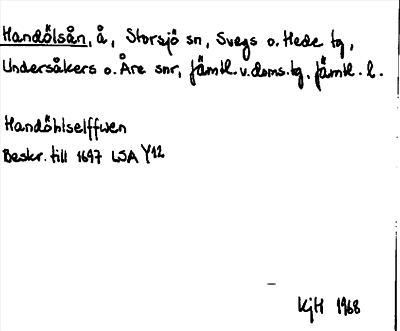 Handölsån, å, Storsjö sn, Svegs o. Hede tg,
Undersåkers o. Åre snr, Jämtl.v.doms.tg. Jämtl. l.
Handöhlselffwen
Beskr. till 1697 LSA Y12
KjH 1968